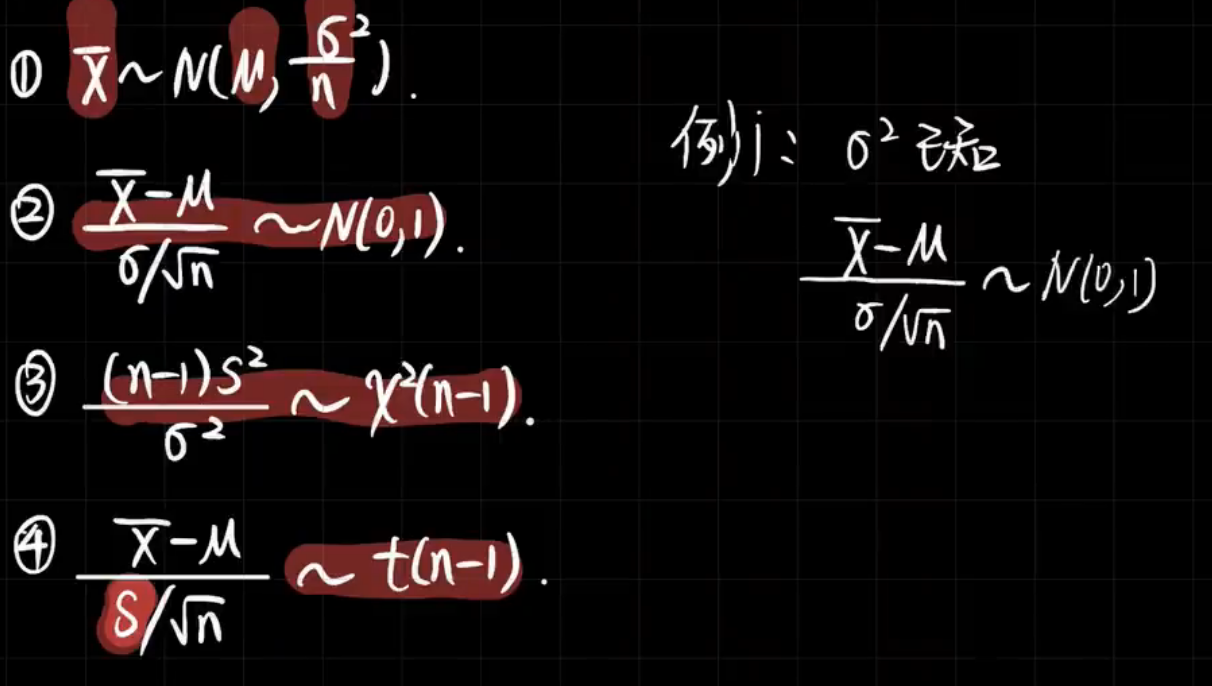 ① X̄ ~ N(μ, σ²/n).
② (X̄-μ)/(σ/√n) ~ N(0,1).
③ (n-1)S²/σ² ~ χ²(n-1).
④ (X̄-μ)/(S/√n) ~ t(n-1).
例j: σ²已知
(X̄-μ)/(σ/√n) ~ N(0,1)